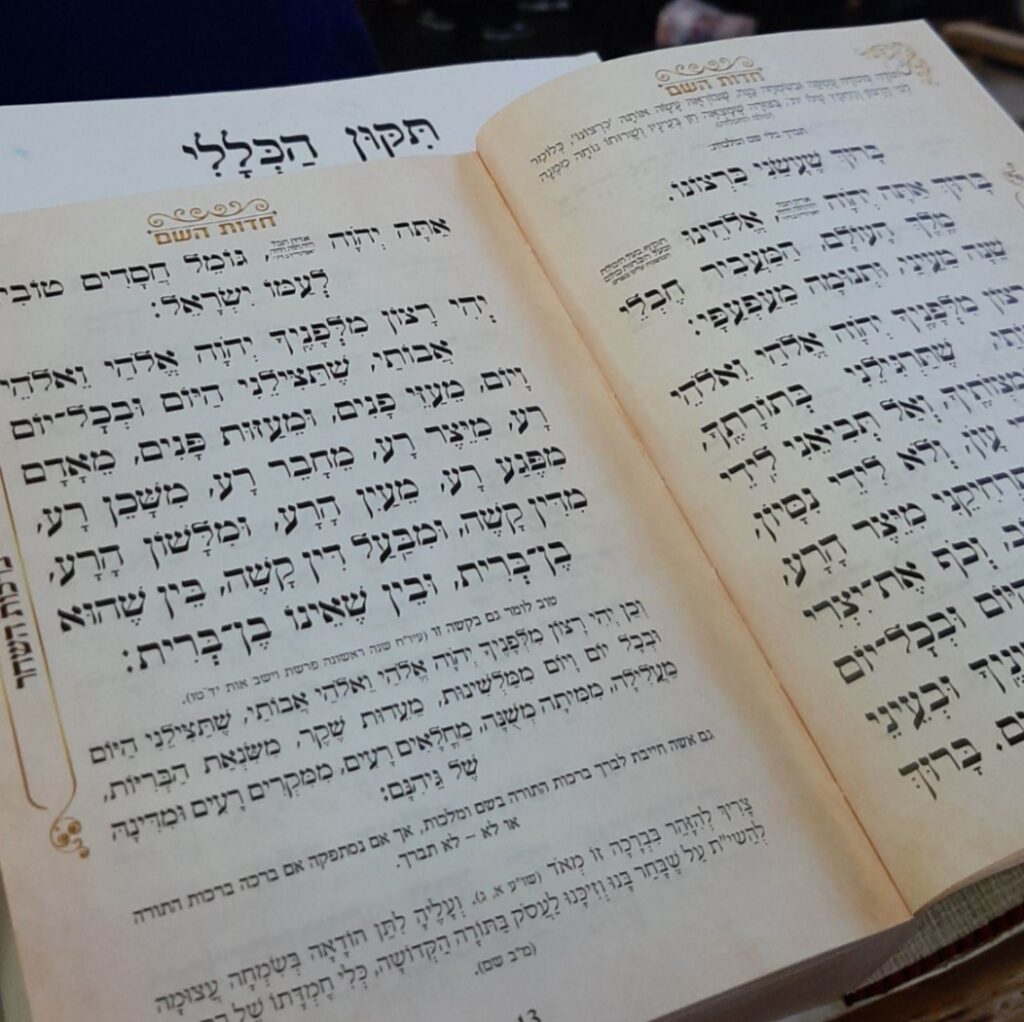 תִּקּוּן הַכְּלָלִי
חדות השם
תברך בלי שם ומלכות:
בָּרוּךְ שֶׁעָשַׂנִי כִּרְצוֹנוֹ.
בָּרוּךְ אַתָּה יְהֹוָה, אֱלֹהֵינוּ
מֶלֶךְ הָעוֹלָם, הַמַּעֲבִיר חֶבְלֵי
שֵׁנָה מֵעֵינַי, וּתְנוּמָה מֵעַפְעַפָּי:
רָצוֹן מִלְּפָנֶיךָ יְהֹוָה אֱלֹהַי וֵאלֹהֵי
שֶׁתַּרְגִּילֵנִי בְּתוֹרָתֶךָ,
וְאַל תְּבִיאֵנִי לִידֵי
עָוֹן, וְלֹא לִידֵי נִסָּיוֹן,
מִיֵּצֶר הָרָע,
וְכֹף אֶת־יִצְרִי
הַיּוֹם וּבְכָל־יוֹם
וּבְעֵינֵי
בָּרוּךְ
חדות השם
אַתָּה יְהֹוָה, גּוֹמֵל חֲסָדִים טוֹבִים
לְעַמּוֹ יִשְׂרָאֵל:
יְהִי רָצוֹן מִלְּפָנֶיךָ יְהֹוָה אֱלֹהַי וֵאלֹהֵי
אֲבוֹתַי, שֶׁתַּצִּילֵנִי הַיּוֹם וּבְכָל־יוֹם
וָיוֹם, מֵעַזֵּי פָנִים, וּמֵעַזּוּת פָּנִים, מֵאָדָם
רָע, מִיֵּצֶר רָע, מֵחָבֵר רָע, מִשָּׁכֵן רָע,
מִפֶּגַע רָע, מֵעַיִן הָרָע, וּמִלָּשׁוֹן הָרָע,
מִדִּין קָשֶׁה, וּמִבַּעַל דִּין קָשֶׁה, בֵּין שֶׁהוּא
בֶן־בְּרִית, וּבֵין שֶׁאֵינוֹ בֶן־בְּרִית:
טוב לומר גם בקשה זו (עיו"ח שנה ראשונה פרשת וישב אות יד־טו).
וְכֵן יְהִי רָצוֹן מִלְּפָנֶיךָ יְהֹוָה אֱלֹהַי וֵאלֹהֵי אֲבוֹתַי, שֶׁתַּצִּילֵנִי הַיּוֹם
וּבְכָל יוֹם וָיוֹם מִמַּלְשִׁינוּת, מֵעֵדוּת שֶׁקֶר, מִשִּׂנְאַת הַבְּרִיּוֹת,
מֵעֲלִילָה, מִמִּיתָה מְשֻׁנָּה, מֵחֳלָאִים רָעִים, מִמִּקְרִים רָעִים וּמִדִּינָהּ
שֶׁל גֵּיהִנָּם:
גם אשה חייבת לברך ברכות התורה בשם ומלכות, אך אם נסתפקה אם ברכה ברכות התורה
או לא – לא תברך.
צָרִיךְ לְהִזָּהֵר בִּבְרָכָה זוֹ מְאוֹד (שו"ע א, ג). וְעָלֶיהָ לִתֵּן הוֹדָאָה בְּשִׂמְחָה עֲצוּמָה
לְהַשִּׁי"ת עַל שֶׁבָּחַר בָּנוּ וְזִיכָּנוּ לַעֲסֹק בַּתּוֹרָה הַקְּדוֹשָׁה, כְּלִי חֶמְדָּתוֹ שֶׁל
(מ"ב שם).
13
ברכות השחר